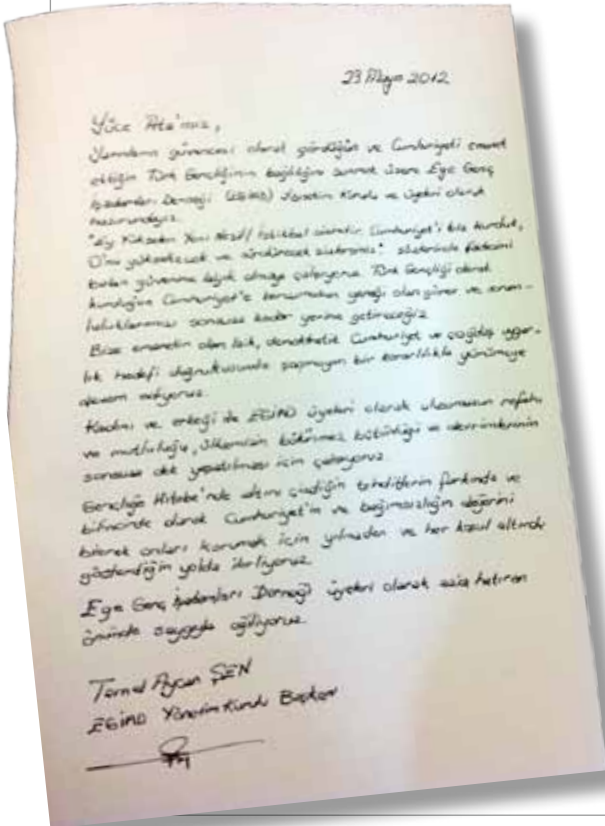 23 Mayıs 2012
Yüce Ata'mız,
Yarınların güvencesi olarak gördüğün ve Cumhuriyeti emanet
ettiğin Türk Gençliğinin bağlılığını sunmak üzere Ege Genç
İşadamları Derneği (EGİAD) Yönetim Kurulu ve üyeleri olarak
huzurundayız.
"Ey Yükselen Yeni Nesil! İstikbal sizindir. Cumhuriyet'i biz kurduk,
O'nu yükseltecek ve sürdürecek sizlersiniz." sözlerinde
güvenine layık olmaya çalışıyoruz. Türk Gençliği olarak
kurduğun Cumhuriyet'e gereği olan görev ve sorum-
luluklarımızı sonsuza kadar yerine getireceğiz.
Bize emanetin olan laik, demokratik Cumhuriyet ve çağdaş uygar-
lık hedefi doğrultusunda sapmayan bir kararlılıkla yürümeye
devam ediyoruz.
Kadını ve erkeği ile EGİAD üyeleri olarak ulusumuzun refahı
ve mutluluğu, ülkemizin bölünmez bütünlüğü ve devrimlerinin
sonsuza dek yaşatılması için çalışıyoruz.
Gençliğe Hitabe'nde altını çizdiğin tehditlerin farkında ve
bilincinde olarak Cumhuriyet'in ve bağımsızlığın değerini
bilerek onları korumak için yılmadan ve her koşul altında
gösterdiğin yolda ilerliyoruz.
Ege Genç İşadamları Derneği üyeleri olarak aziz hatıran
önünde saygıyla eğiliyoruz.
Temel Aycan ŞEN
EGİAD Yönetim Kurulu Başkanı